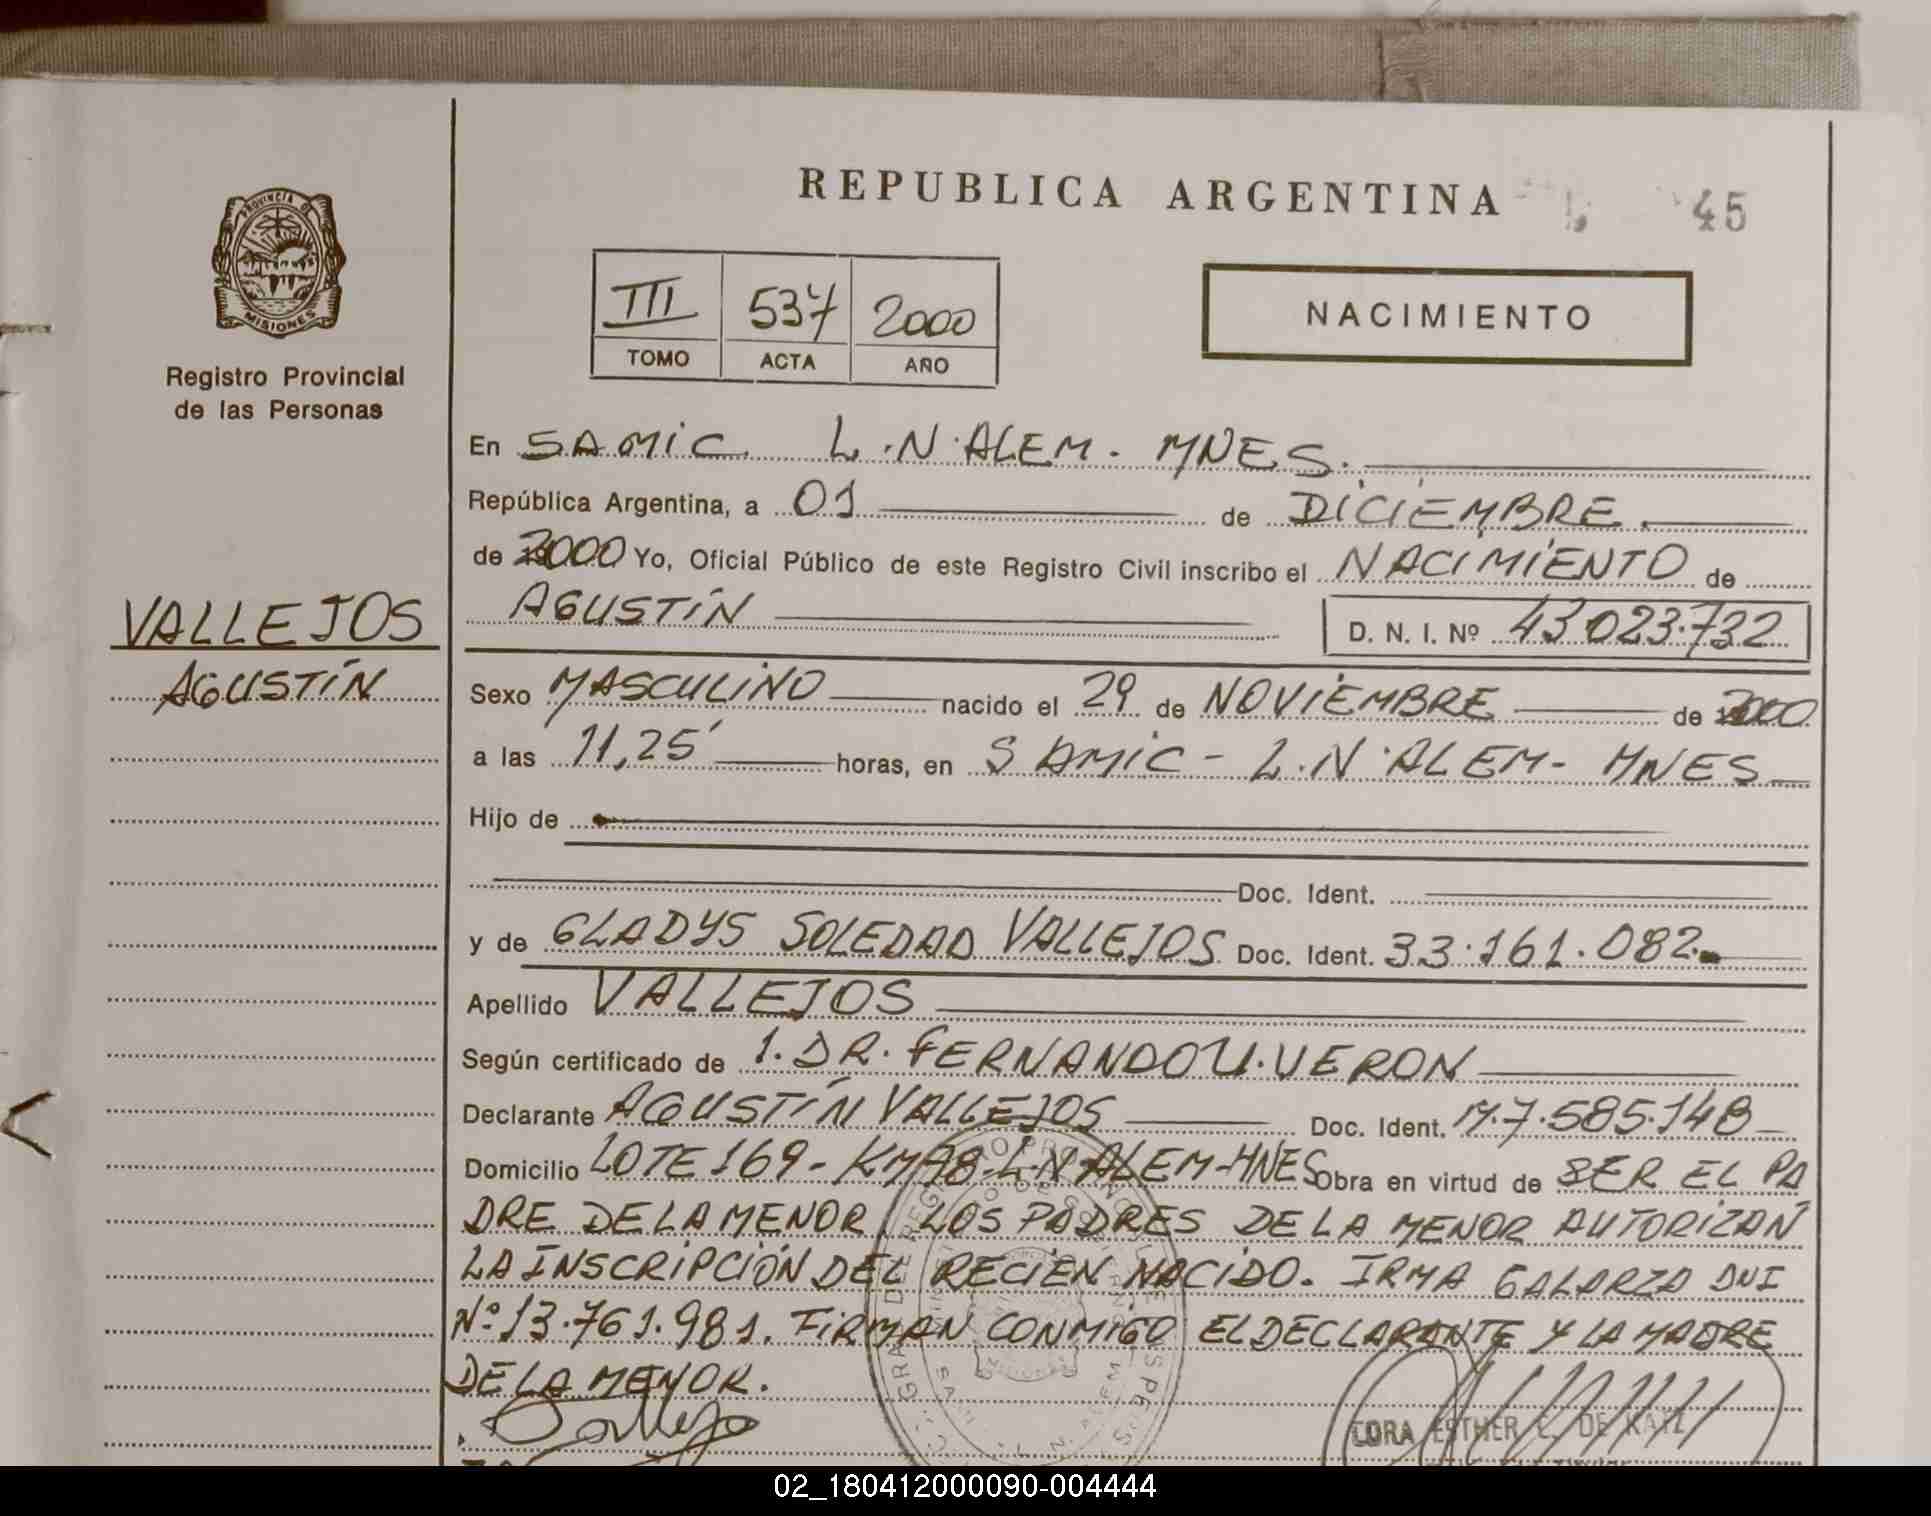 REPUBLICA ARGENTINA
45
PROVINCIA DE
MISIONES
Registro Provincial
de las Personas
III 537 2000
TOMO ACTA AÑO
NACIMIENTO
En SAMIC L.N.ALEM. MNES.
República Argentina, a 01 de DICIEMBRE.
de 2000 Yo, Oficial Público de este Registro Civil inscribo el NACIMIENTO de
AGUSTÍN D. N. I. Nº 43.023.732
VALLEJOS
AGUSTÍN
Sexo MASCULINO nacido el 29 de NOVIEMBRE de 2000
a las 11,25' horas, en SAMIC - L.N.ALEM- MNES
Hijo de
Doc. Ident.
y de GLADYS SOLEDAD VALLEJOS Doc. Ident. 33.161.082.
Apellido VALLEJOS
Según certificado de 1. DR. FERNANDO U. VERON
Declarante AGUSTÍN VALLEJOS Doc. Ident. M.7.585.148
Domicilio LOTE 169- KM 98-L.N ALEM-MNES Obra en virtud de SER EL PA
DRE DE LA MENOR, LOS PADRES DE LA MENOR AUTORIZAN
LA INSCRIPCIÓN DEL RECIEN NACIDO. IRMA GALARZA DNI
Nº 13.761.981. FIRMAN CONMIGO EL DECLARANTE Y LA MADRE
DE LA MENOR.
ESTHER E. DE KATZ
02_180412000090-004444